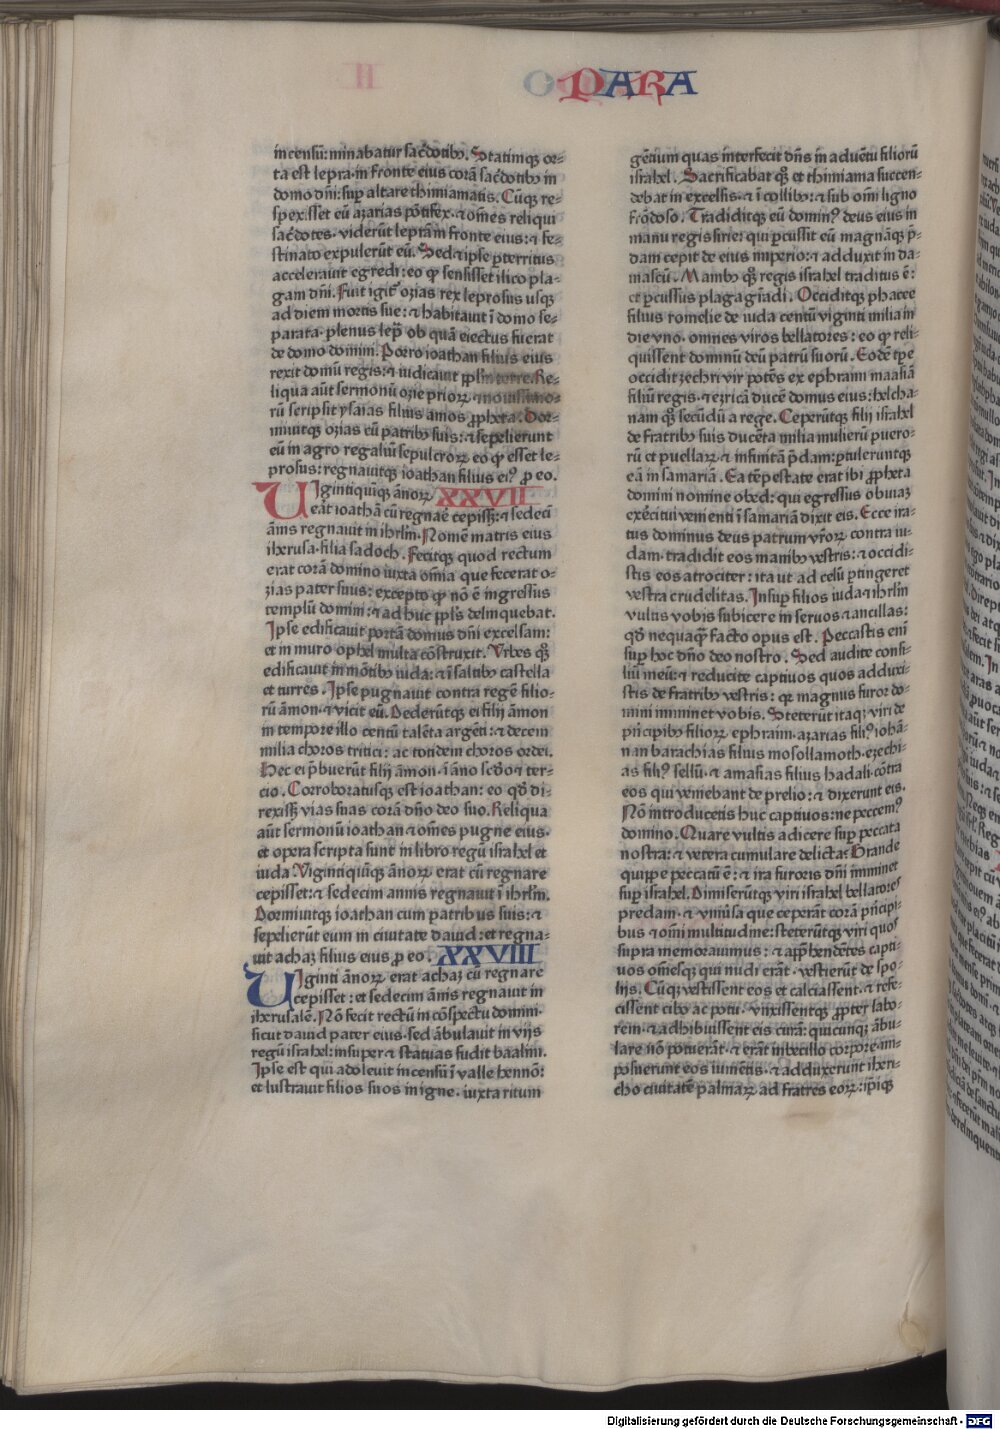 PARA
incensū: minabatur sac̄dotibꝫ. Statimqꝫ or⸗
ta est lepra in fronte eius corā sac̄dotibꝫ in
domo dn̄i: suꝑ altare thimiamatis. Cūqꝫ re⸗
spexisset eū azarias pōtifex ⁊ om̄es reliqui
sac̄dotes· viderūt leprā in fronte eius: ⁊ fe⸗
stinato expulerūt eū. Sed ⁊ ipse ꝑterritus
acceleravit egredi: eo ꝙ sensisset ilico pla⸗
gam dn̄i. Fuit igit᷑ ozias rex leprosus usqꝫ
ad diem mortis sue: ⁊ habitavit ī domo se⸗
parata· plenus lep̄· ob quā eiectus fuerat
de domo domini. Porro ioathan filius eius
rexit domū regis: ⁊ iudicavit ppl̄m terre. Re⸗
liqua aūt sermonū ozie priorꝝ ⁊ novissimo⸗
rū scripsit ysaias filius amos ꝓpheta. Dor⸗
mivitqꝫ ozias cū patribꝫ suis: ⁊ sepelierunt
eū in agro regaliū sepulcrorꝝ eo ꝙ esset le⸗
prosus: regnavitqꝫ ioathan filius eiꝰ ꝓ eo.
Viginti qūiqꝫ ānorꝝ XXVII
erat ioathā cū regnae cepiss̄: ⁊ sedecī
ānis regnavit in ihrl̄m. Nomē matris eius
iherusa· filia sadoch. Fecitqꝫ quod rectum
erat corā domino iuxta om̄ia que fecerat o⸗
zias pater suus: excepto ꝙ nō ē ingressus
templū domini: ⁊ adhuc ppl̄s delinquebat.
Ipse edificavit portā domus dn̄i excelsam:
et in muro ophel multa cōstruxit. Vrbes qꝫ
edificavit in mōtibꝫ iuda: ⁊ ī saltibꝫ castella
et turres. Ipse pugnavit contra regē filio⸗
rū āmon· ⁊ vicit eū. Dederūtqꝫ ei filij āmon
in tempore illo centū talēta argēti: ⁊ decem
milia choros tritici: ac totidem choros ordei.
Hec ei p̄buerūt filij āmon· ī āno sc̄do ⁊ ter⸗
cio. Corroboratusqꝫ est ioathan: eo qꝫ di⸗
rexiss̄ vias suas corā dn̄o deo suo. Reliqua
aūt sermonū ioathan ⁊ om̄es pugne eius·
et opera scripta sunt in libro regū israhel et
iuda. Viginti qūiqꝫ ānorꝝ erat cū regnare
cepisset: ⁊ sedecim annis regnavit ī ihrl̄m.
Dormivitqꝫ ioathan cum patribus suis: ⁊
sepelierūt eum in civitate david: et regna⸗
vit achaz filius eius ꝓ eo. XXVIII
Viginti ānorꝝ erat achaz cū regnare
cepisset: et sedecim ānis regnavit in
iherusalē. Nō fecit rectū in cōspectu domini·
sicut david pater eius· sed ābulavit in vijs
regū israhel: insuper ⁊ statuas fudit baalim.
Ipse est qui adolevit incensū ī valle hennō:
et lustravit filios suos in igne· iuxta ritum
gētium quas interfecit dn̄s in advētu filiorū
israhel. Sacrificabat qꝫ et thimiama succen⸗
debat in excelsis ⁊ ī collibꝫ: ⁊ sub om̄i ligno
frōdoso. Tradiditqꝫ eū dominꝰ deus eius in
manu regis sirie: qui ꝑcussit eū magnāqꝫ p̄⸗
dam cepit de eius imperio: ⁊ adduxit in da⸗
mascū. Manibꝫ qꝫ regis israhel traditus ē:
et ꝑcussus plaga grādi. Occiditqꝫ phacee
filius romelie de iuda centū viginti milia in
die uno· omnes viros bellatores: eo ꝙ reli⸗
quissent dominū deū patrū suorū. Eodē tꝑe
occidit zechri vir potēs ex ephraim maasiā
filiū regis ⁊ ezricā ducē domus eius: helcha⸗
nam qꝫ secūdū a rege. Ceperūtqꝫ filij israhel
de fratribꝫ suis ducēta milia mulierū puero⸗
rū et puellarꝝ ⁊ infinitā p̄dam: ꝑtuleruntqꝫ
eā in samariā. Ea tēpestate erat ibi ꝓpheta
domini nomine obed: qui egressus obviaꝫ
exēcitui venienti ī samariā dixit eis. Ecce ira⸗
tus dominus deus patrum vr̄orꝝ contra iu⸗
dam· tradidit eos manibꝫ vestris: ⁊ occidi⸗
stis eos atrociter: ita ut ad celū ꝑtingeret
vestra crudelitas. Insuꝑ filios iuda ⁊ ihrl̄m
vultis vobis subicere in servos ⁊ ancillas:
qꝫ nequaꝗ̄ facto opus est. Peccastis eni
suꝑ hoc dn̄o deo nostro. Sed audite consi⸗
liū meū: ⁊ reducite captivos quos adduxi⸗
stis de fratribꝫ vestris: qꝛ magnus furor do⸗
mini imminet vobis. Steterūt itaqꝫ viri de
p̄ncipibꝫ filiorꝝ ephraim· azarias filiꝰ iohā⸗
nan barachias filius mosollamoth· ezechi⸗
as filiꝰ sellū· ⁊ amasias filius hadali· cōtra
eos qui veniebant de prelio: ⁊ dixerunt eis.
Nō introducetis huc captivos: ne peccemꝰ
domino. Quare vultis adicere suꝑ peccata
nostra: ⁊ vetera cumulare delicta: Grande
quippe peccatū ē: ⁊ ira furoris dn̄i imminet
suꝑ israhel. Dimiserūtqꝫ viri israhel bellatores
predam· ⁊ univ̄sa que ceperāt corā p̄ncipi⸗
bus ⁊ om̄i multitudine: steterūtqꝫ viri quos
supra memoravimus: ⁊ app̄hendētes capti⸗
vos om̄esqꝫ qui nudi erāt· vestierūt de spo⸗
lijs. Cūqꝫ vestissent eos et calciassent ⁊ refe⸗
cissent cibo ac potu· vnxissentqꝫ ꝓpter labo⸗
rem ⁊ adhibuissent eis curā: quicunqꝫ ābu⸗
lare nō potuerāt· ⁊ erāt inbecillo corpore im⸗
posuerunt eos iumētis· ⁊ adduxerunt iheri⸗
cho civitatē palmarꝝ ad fratres eorꝝ: ip̄iqꝫ
Digitalisierung gefördert durch die Deutsche Forschungsgemeinschaft - DFG